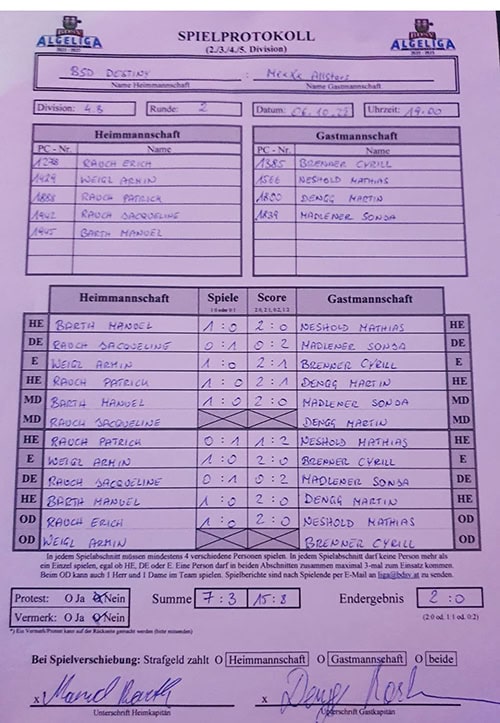 BDSV
ALGELIGA
SPIELPROTOKOLL
(2./3./4./5. Division)
BDSV
ALGELIGA
BSD DESTINY : Mekka Allstars
Name Heimmannschaft Name Gastmannschaft
Division: 4.B Runde: 2 Datum: 06.10.23 Uhrzeit: 19:00
Heimmannschaft Gastmannschaft
PC - Nr. Name PC - Nr. Name
RAUCH ERICH 1385 BRENNER CYRILL
WEIGL ARMIN 1566 NESHOLD MATHIAS
1888 RAUCH PATRICK 1800 DENGG MARTIN
1942 RAUCH JACQUELINE 1839 MADLENER SONJA
1945 BARTH MANUEL
Heimmannschaft Spiele Score Gastmannschaft
1:0 oder 0:1 2:0, 2:1, 0:2, 1:2
HE BARTH MANUEL 1:0 2:0 NESHOLD MATHIAS HE
DE RAUCH JACQUELINE 0:1 0:2 MADLENER SONJA DE
E WEIGL ARMIN 1:0 2:1 BRENNER CYRILL E
HE RAUCH PATRICK 1:0 2:1 DENGG MARTIN HE
MD BARTH MANUEL 1:0 2:0 MADLENER SONJA MD
MD RAUCH JACQUELINE DENGG MARTIN MD
HE RAUCH PATRICK 0:1 1:2 NESHOLD MATHIAS HE
E WEIGL ARMIN 1:0 2:0 BRENNER CYRILL E
DE RAUCH JACQUELINE 0:1 0:2 MADLENER SONJA DE
HE BARTH MANUEL 1:0 2:0 DENGG MARTIN HE
OD RAUCH ERICH 1:0 2:0 NESHOLD MATHIAS OD
OD WEIGL ARMIN BRENNER CYRILL OD
In jedem Spielabschnitt müssen mindestens 4 verschiedene Personen spielen. In jedem Spielabschnitt darf keine Person mehr als
ein Einzel spielen, egal ob HE, DE oder E. Eine Person darf in beiden Abschnitten zusammen maximal 3-mal zum Einsatz kommen.
Beim OD kann auch 1 Herr und 1 Dame im Team spielen. Spielberichte sind nach Spielende per E-Mail an liga@bdsv.at zu senden.
Protest: O Ja O Nein Summe 7:3 15:8 Endergebnis 2:0
Vermerk: O Ja O Nein (2:0 od. 1:1 od. 0:2)
*) Ein Vermerk/Protest kann auf der Rückseite gemacht werden (bitte mitsenden)
Bei Spielverschiebung: Strafgeld zahlt O Heimmannschaft O Gastmannschaft O beide
x Manuel Barth x Dengg
Unterschrift Heimkapitän Unterschrift Gastkapitän